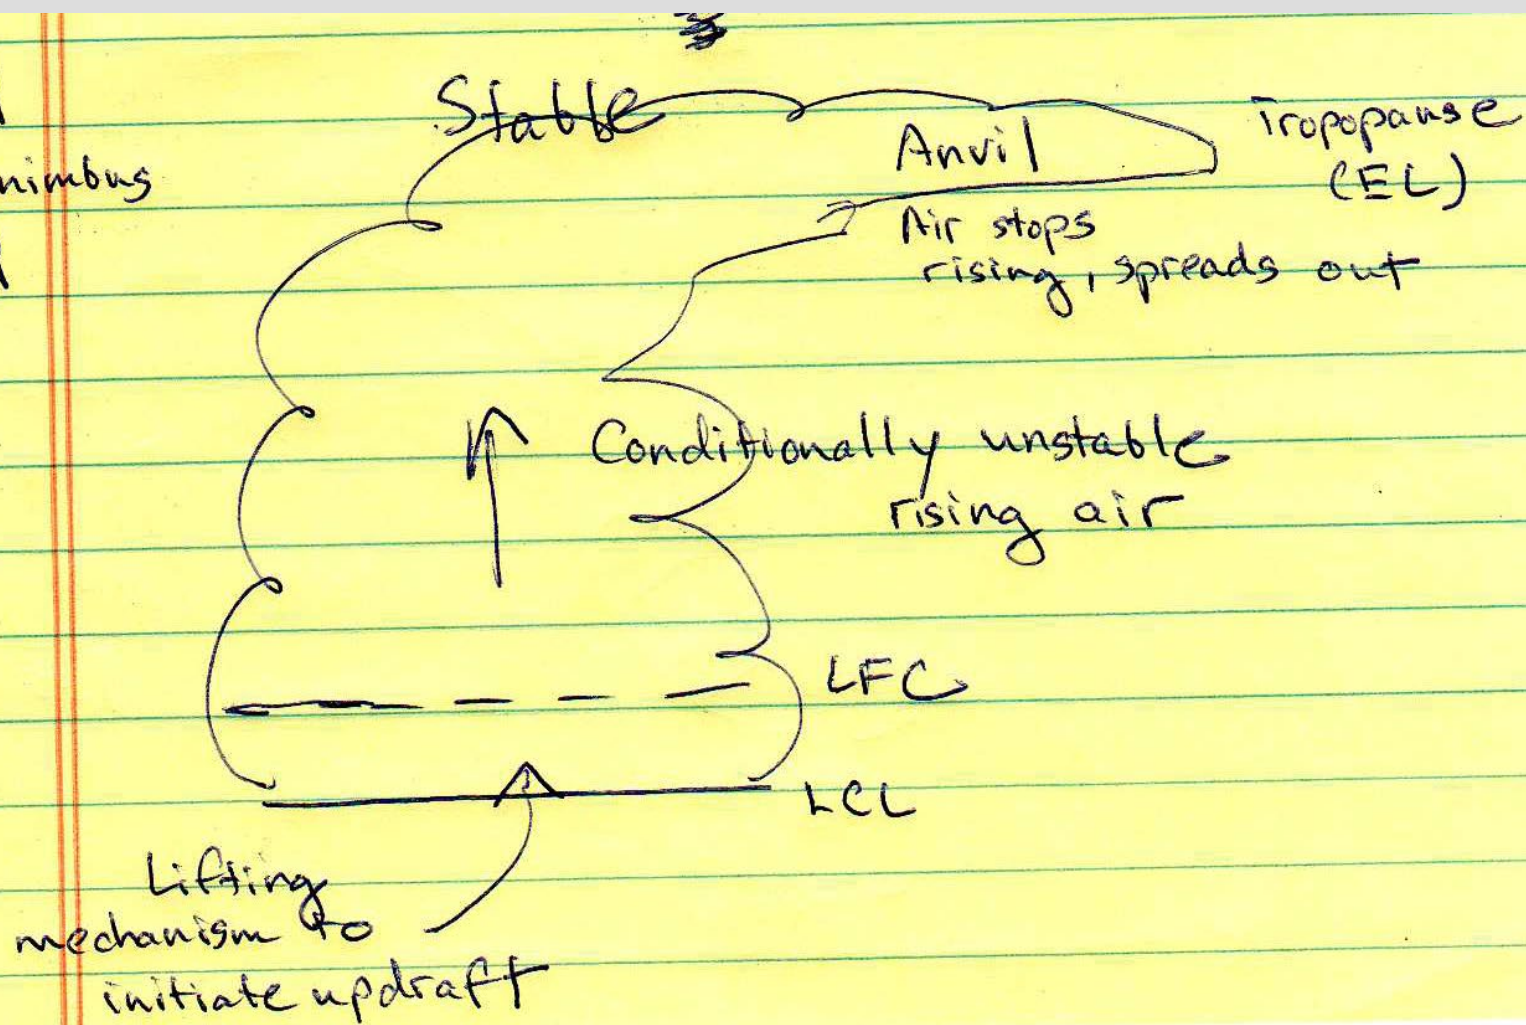 Stable
Anvil
Tropopause
(EL)
nimbus
Air stops
rising, spreads out
Conditionally unstable
rising air
LFC
LCL
Lifting
mechanism to
initiate updraft